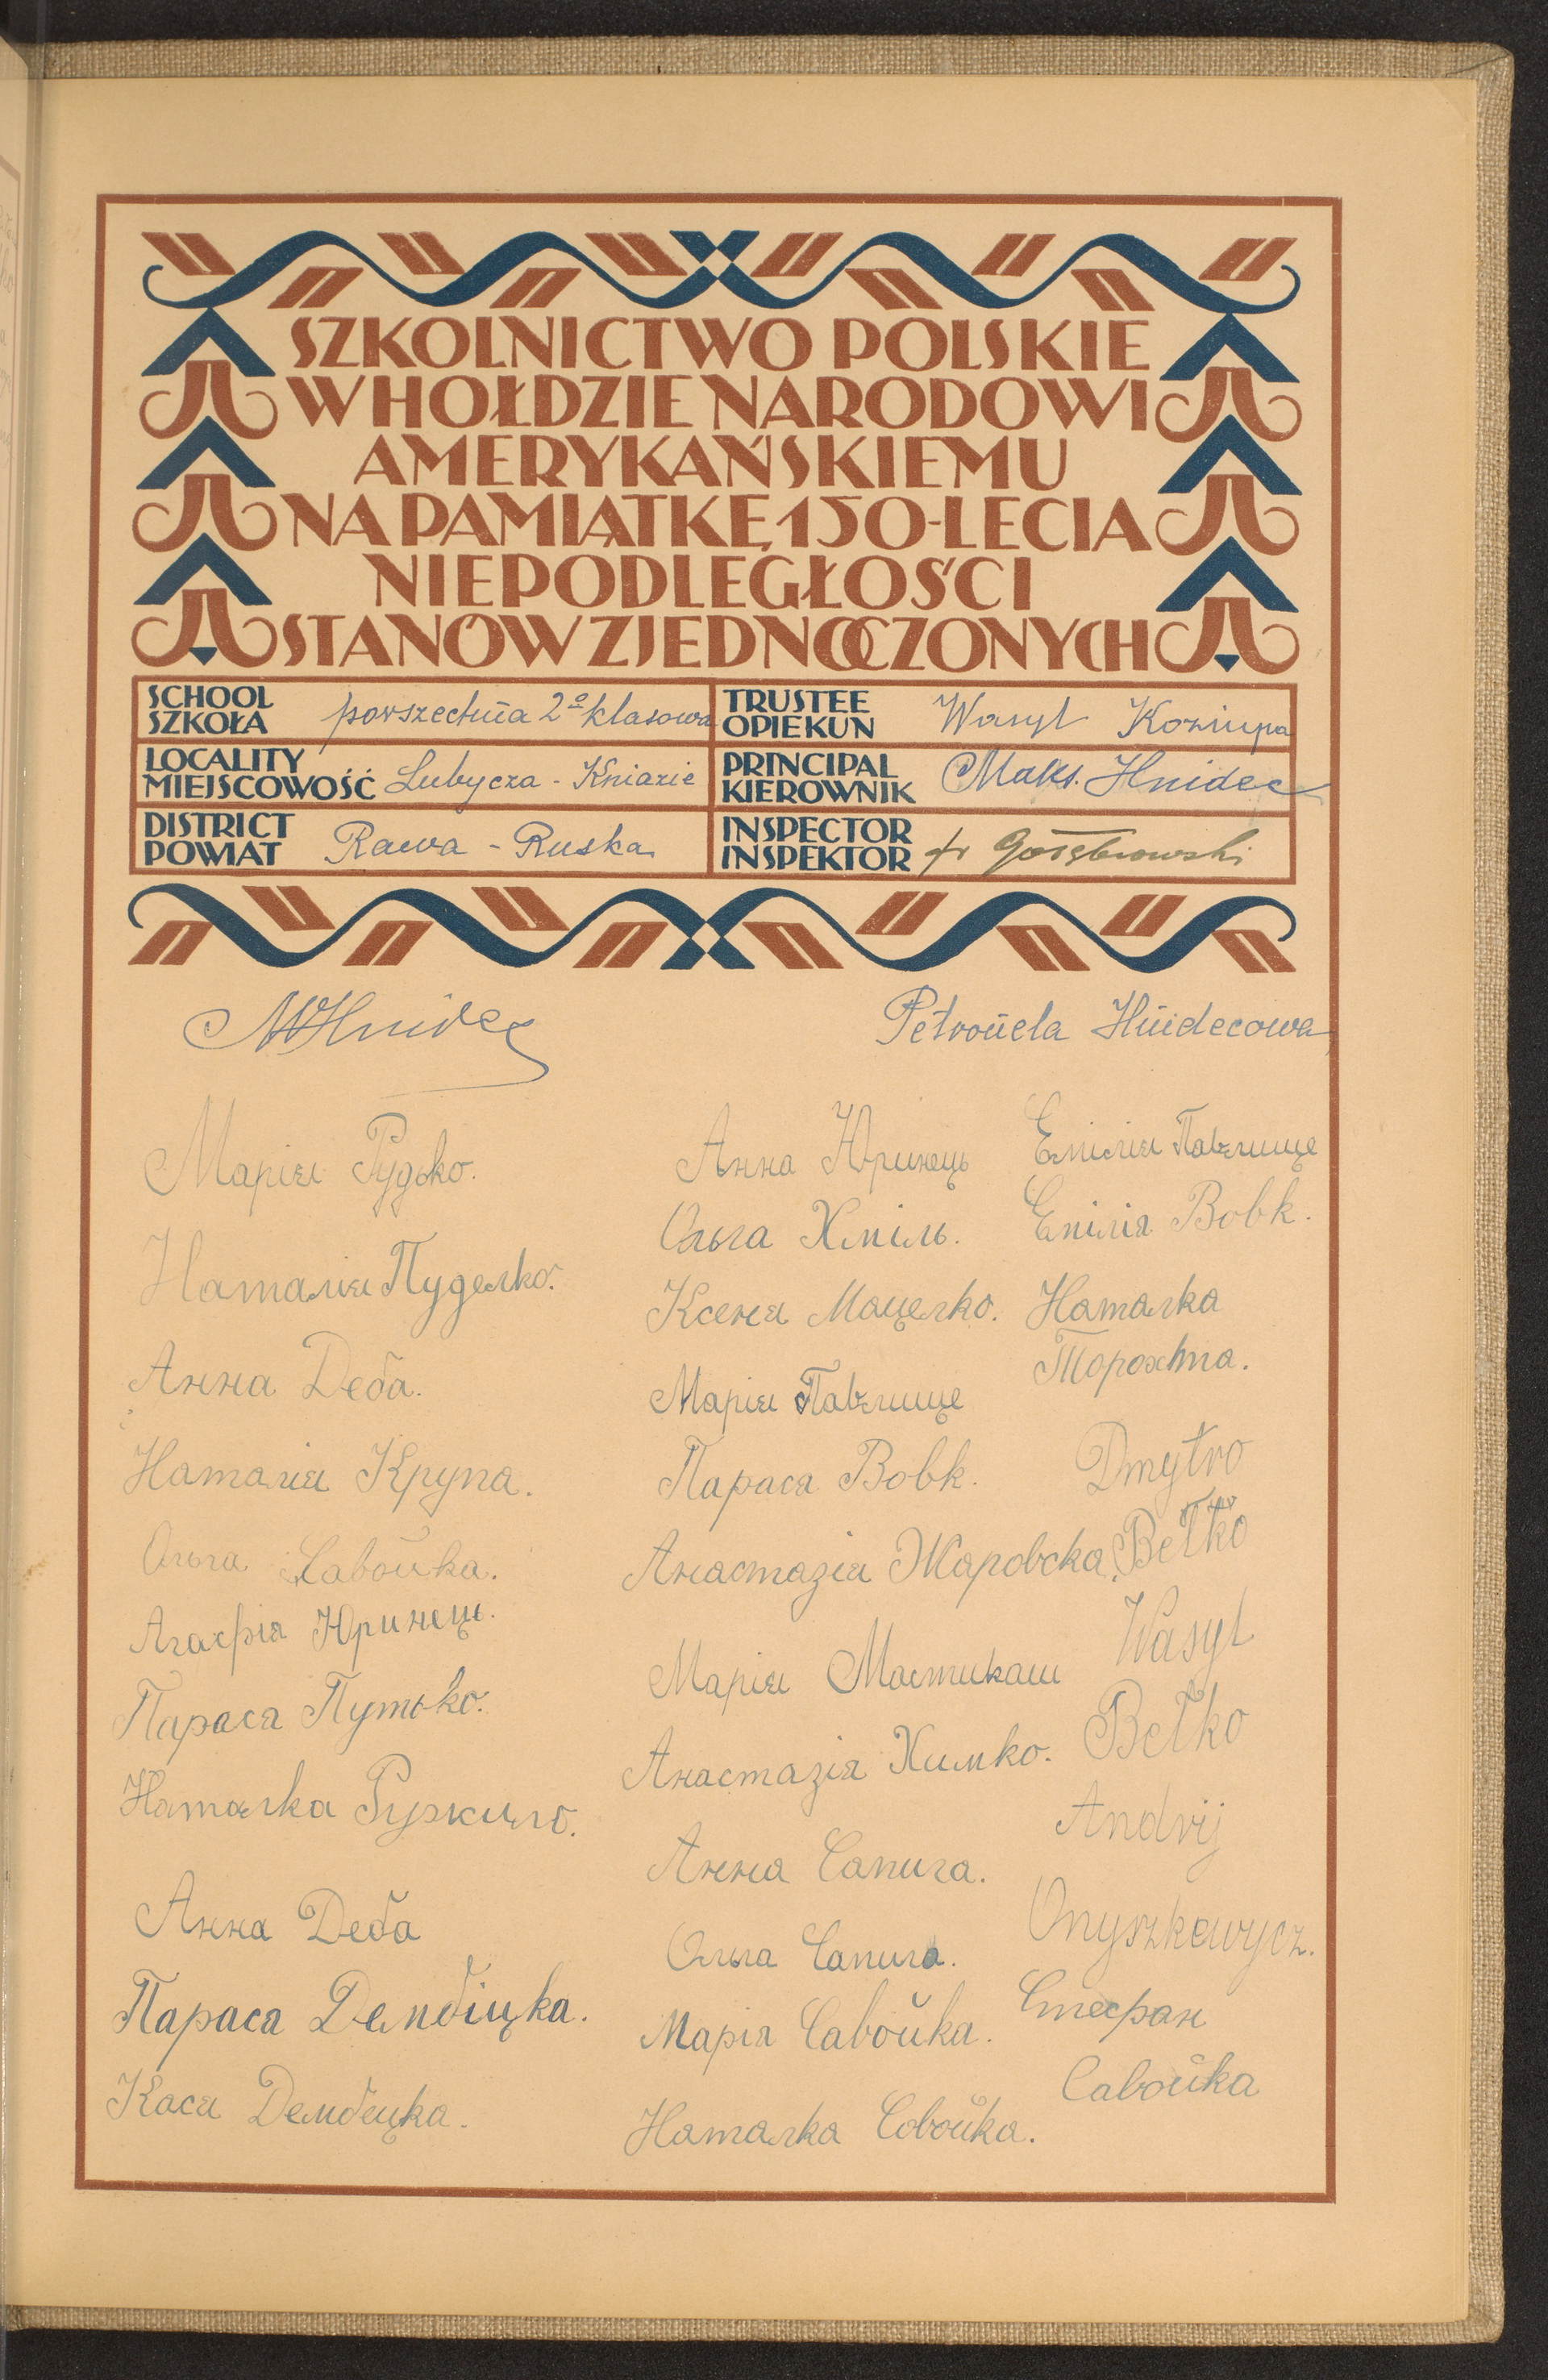 SZKOLNICTWO POLSKIE
W HOŁDZIE NARODOWI
AMERYKAŃSKIEMU
NA PAMIĄTKĘ 150-LECIA
NIEPODLEGŁOŚCI
STANÓW ZJEDNOCZONYCH
SCHOOL
SZKOŁA powszechna 2º klasowa
TRUSTEE
OPIEKUN Wasyl Koziupa
LOCALITY
MIEJSCOWOŚĆ Lubycza - Kniazie
PRINCIPAL
KIEROWNIK Maks. Hnidec
DISTRICT
POWIAT Rawa - Ruska
INSPECTOR
INSPEKTOR Gołębiowski
MHnidec
Petronela Hnidecowa
Марія Рудько.
Наталія Пуделко.
Анна Деба.
Наталія Крупа.
Ольга Савойка.
Агафія Юринець.
Параса Путько.
Наталка
Анна Деба
Параса Дембіцка.
Кася Дембецка.
Анна Юринець
Ольга Хміль.
Ксеня Мацелко.
Марія Павлище
Параса Вовк.
Анастазія Жаровска.
Марія Мастикаш
Анастазія Химко.
Анна Сапига.
Ольга Сапига.
Марія Савойка.
Наталка Совойка.
Емілія Павлище
Емілія Вовк.
Наталка
Торохта.
Dmytro
Bełko
Wasyl
Bełko
Andrij
Onyszkewycz.
Стефан
Савойка